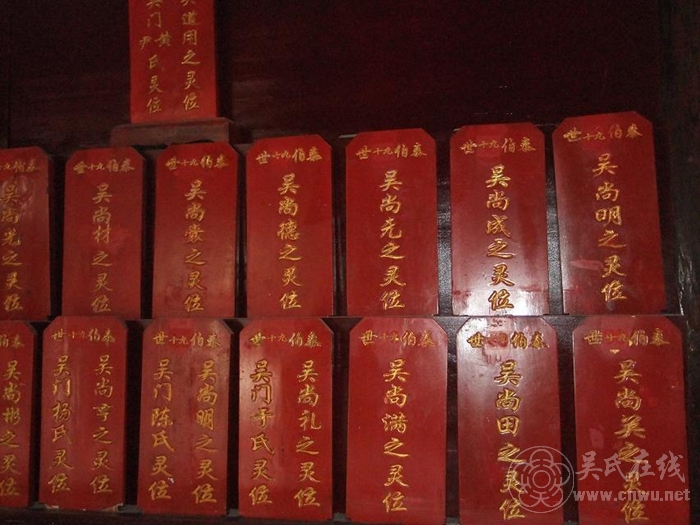 道用之灵位
门黄尹氏灵位
泰伯九十世
吴尚明之灵位
泰伯九十世
吴尚成之灵位
泰伯九十世
吴尚先之灵位
泰伯九十世
吴尚德之灵位
泰伯九十世
吴尚之灵位
泰伯九十世
吴尚材之灵位
泰伯九十
吴尚之灵位
泰伯九十世
吴尚英之灵位
泰伯九十世
吴尚田之灵位
泰伯九十世
吴尚满之灵位
泰伯九十世
吴尚礼之灵位
吴门子氏灵位
泰伯九十世
吴尚明之灵位
吴门陈氏灵位
泰伯九十世
吴尚亨之灵位
吴门杨氏灵位
吴尚彬之灵位
吴氏在线
www.cnwu.net